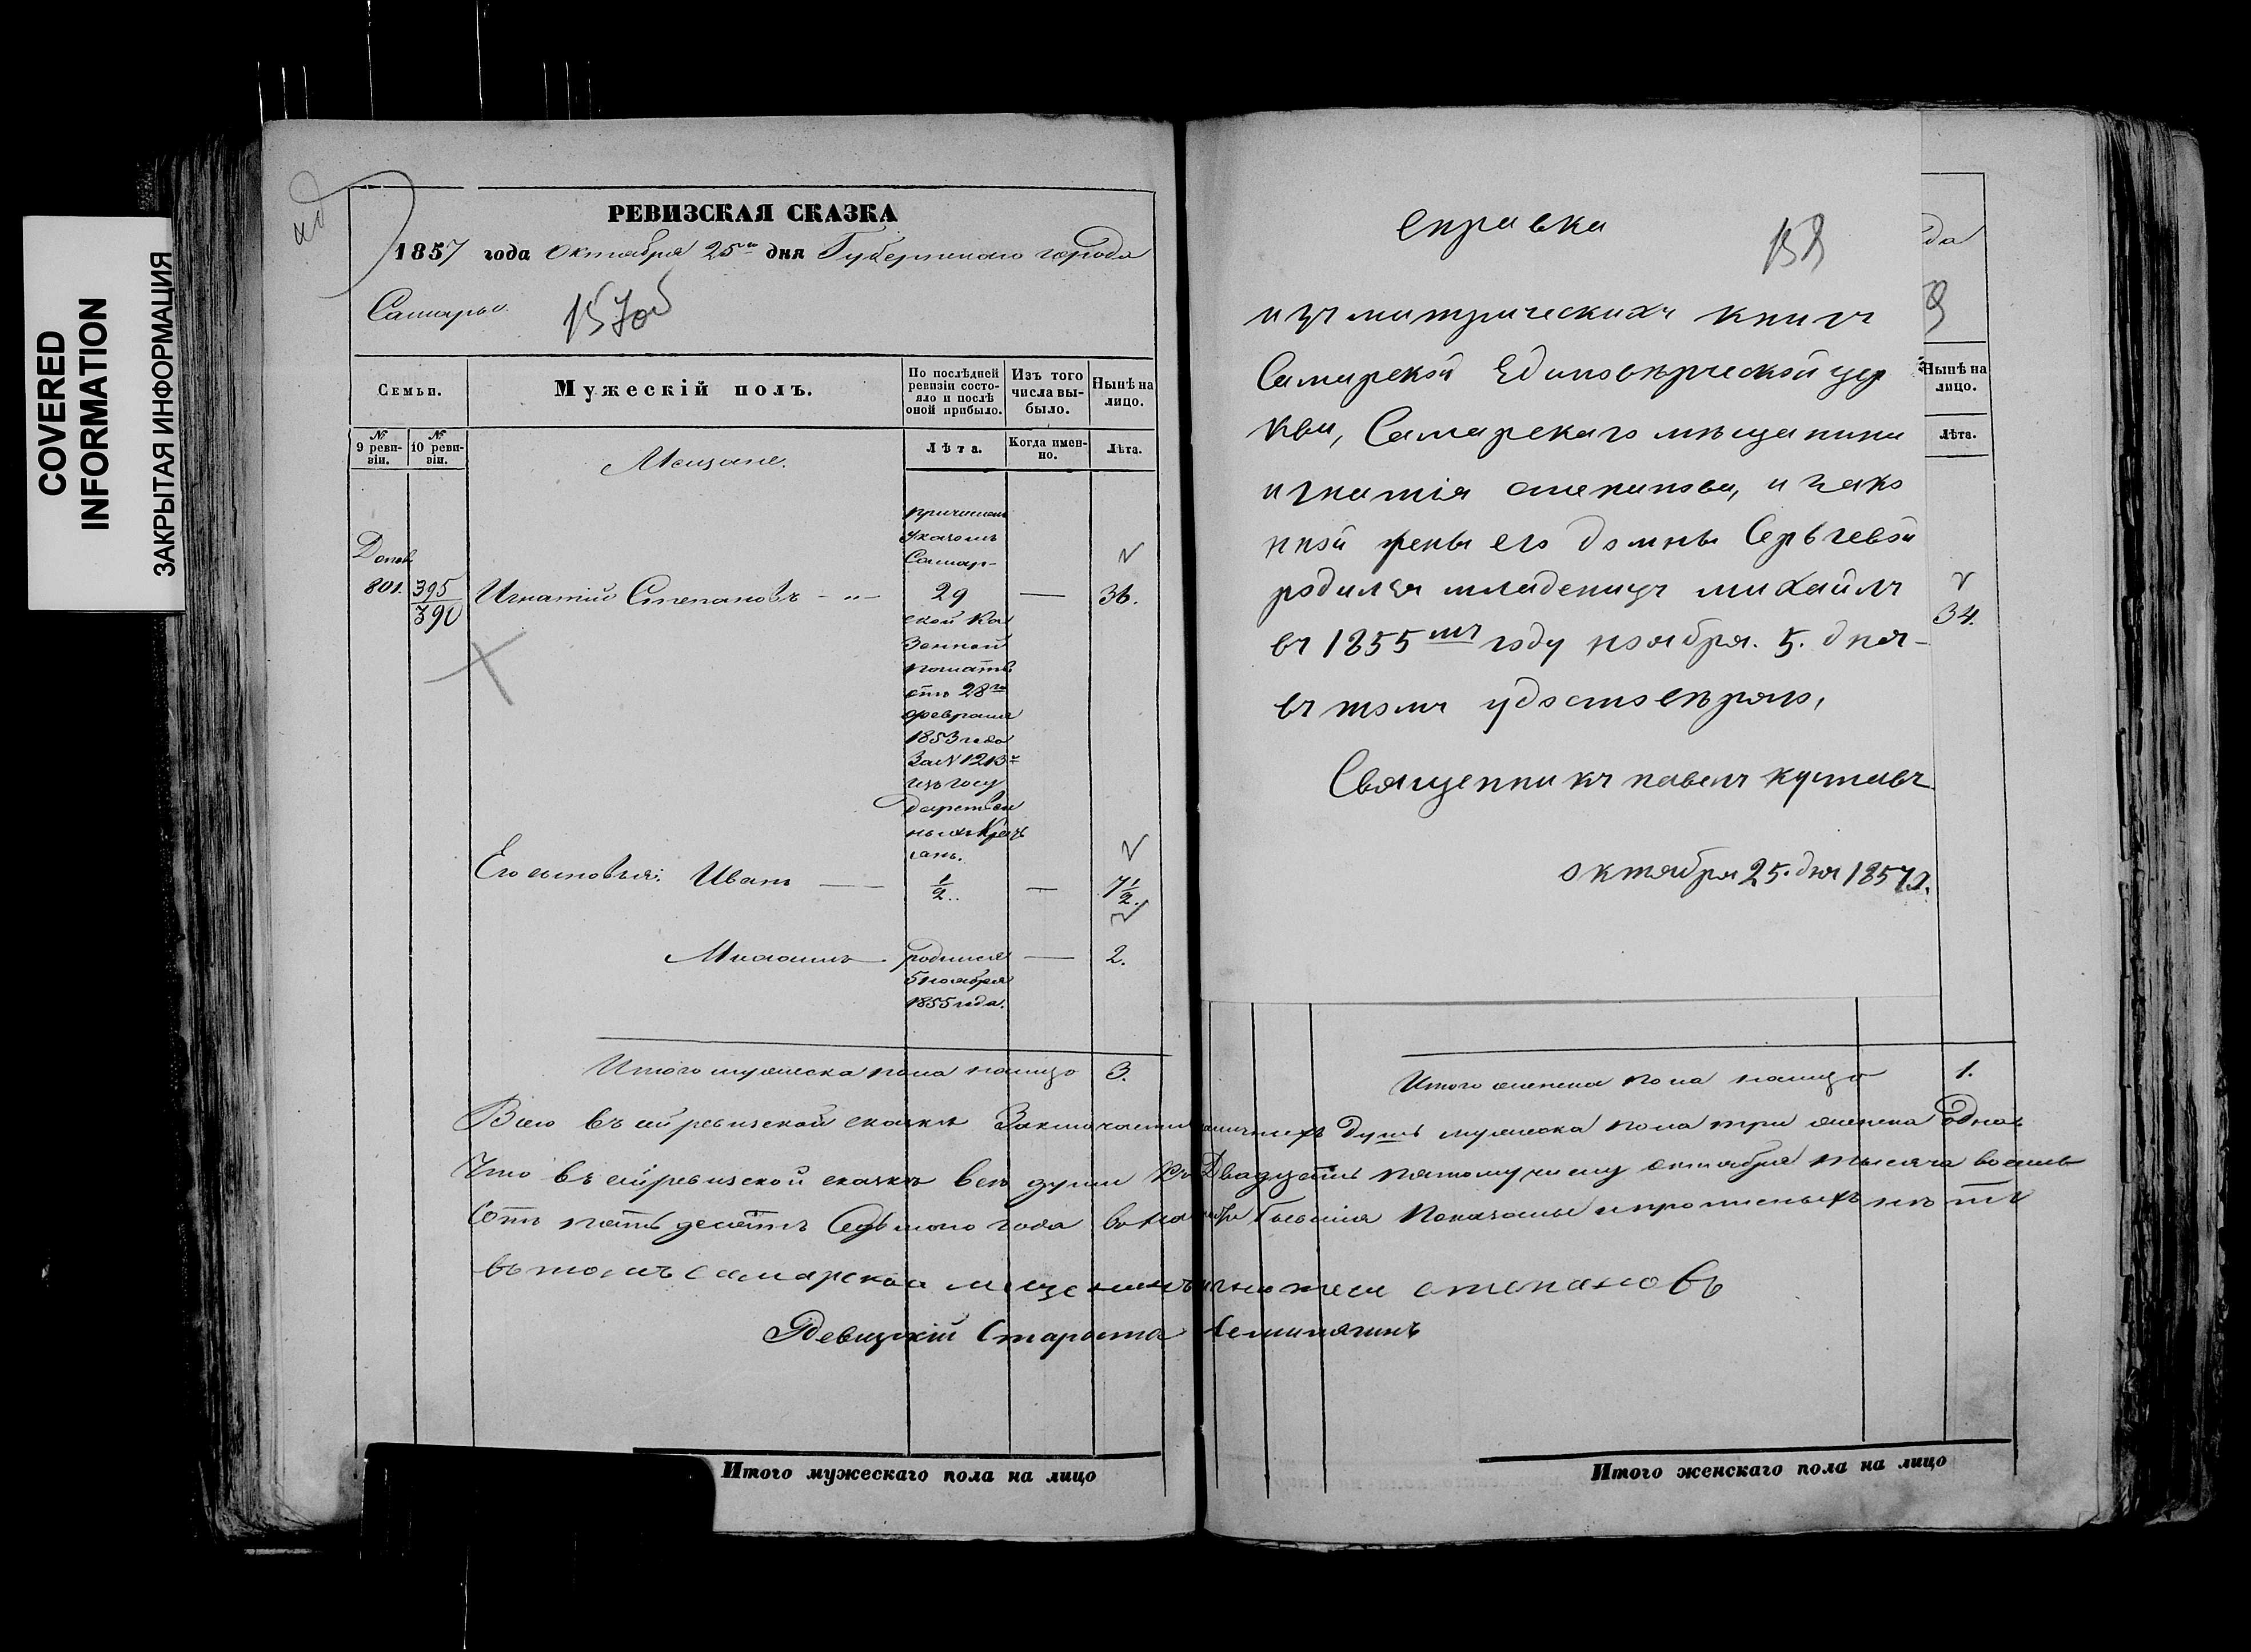 COVERED
INFORMATION
ЗАКРЫТАЯ ИНФОРМАЦИЯ
РЕВИЗСКАЯ СКАЗКА
1857 года Октября 25го дня Губернскаго города
Самары.
157об
Семьи.
Мужескій полъ.
По послѣдней ревизіи состояло и послѣ оной прибыло.
Изъ того числа выбыло.
Нынѣ на лицо.
№ 9 ревизіи.
№ 10 ревизіи.
Мещане.
Лѣта.
Когда именно.
Лѣта.
причислен
указомъ
Самар-
801. 395 Игнатій Степановъ - „ - 29 — 36.
390
ской Ка
зенной
полаты
отъ 28го
февраля
1853 года
за № 1213
изъ госу
дарствен
ныхъ Крес
сянъ.
Его сыновья: Иванъ — 1/2 — 7 1/2.
Михаилъ родился — 2.
5 ноября
1855 года.
Итого мужеска пола налицо 3.
справка
158
изъ митрическихъ книгъ
Самарской Единоверческой цер
кви, Самарскаго мѣщанина
игнатія степанова, и зако
нной жены его домны Сергѣевой
родился младенецъ михайлъ
въ 1855мъ году ноября. 5. дня-
въ томъ удостоверяю,
Священникъ павелъ
октября 25. дня 1857 г.
да
Нынѣ на лицо.
Лѣта.
34.
Итого женска пола налицо 1.
Всего въ сей ревизской сказкѣ Заключается наличныхъ душъ мужеска пола три женска Одна
Что въ сей ревизской сказкѣ все души Къ Двадцать пятому числу октября тысяча восемь
Сотъ пять десятъ Седьмого года въ наличности бывшия Показаны и прописныхъ нѣтъ
въ томъ самарской мещенинъ игнотеи степановъ
Ревизскій Староста
Итого мужескаго пола на лицо
Итого женскаго пола на лицо